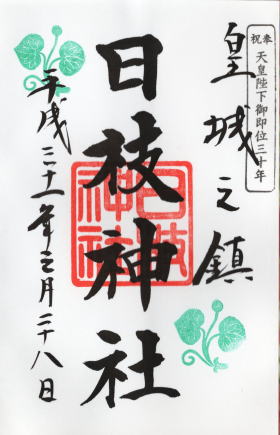 奉祝
天皇陛下御即位三十年
皇城之鎮
日枝神社
日枝神社
平成三十一年 月二十八日